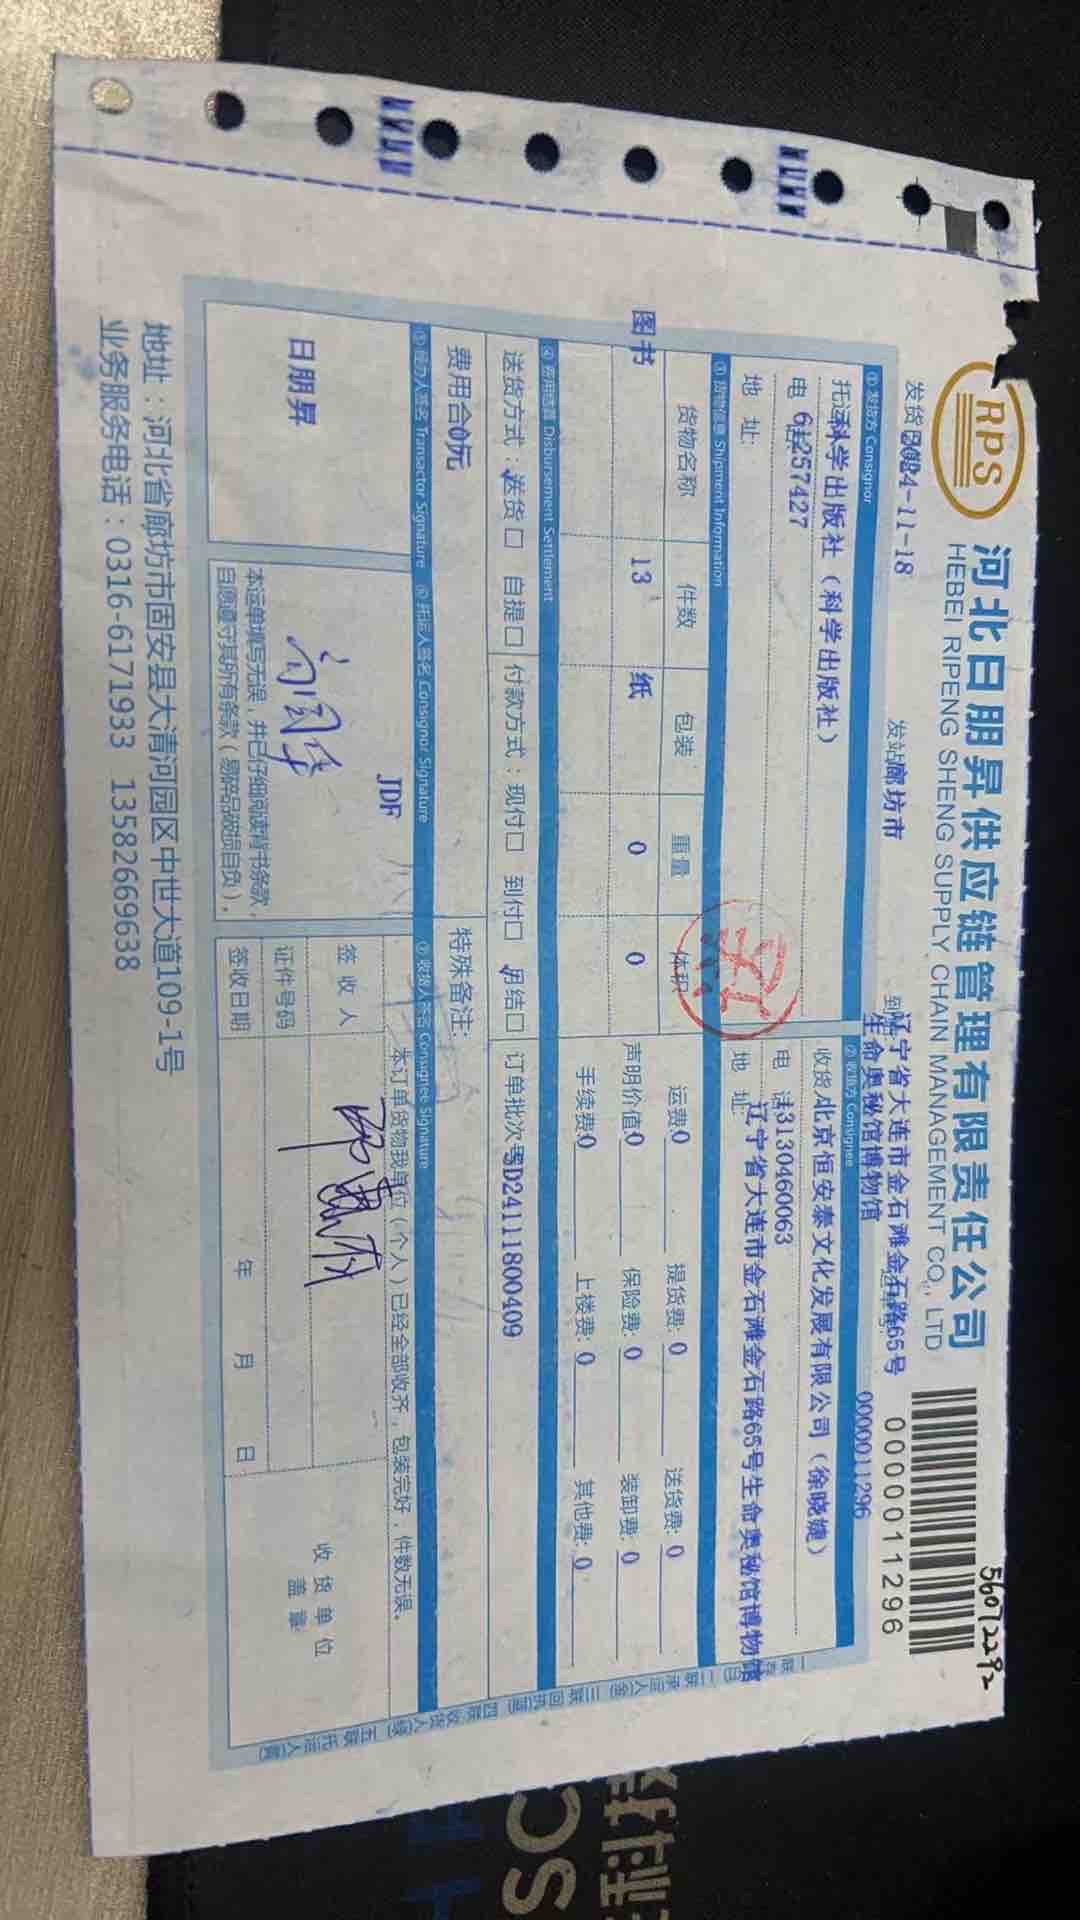 RPS
河北日朋昇供应链管理有限责任公司
HEBEI RIPENG SHENG SUPPLY CHAIN MANAGEMENT CO., LTD
56072292
0000011296
0000011296
发货日 2024-11-18
发站 廊坊市
到 辽宁省大连市金石滩金石路65号
生命奥秘馆博物馆
① 发货方 Consignor
② 收货方 Consignee
托运 科学出版社（科学出版社）
收货 北京恒安泰文化发展有限公司（徐晓婕）
电 话 257427
电 话 3130460063
地 址:
地 址: 辽宁省大连市金石滩金石路65号生命奥秘馆博物馆
③ 货物信息 Shipment Information
货物名称 件数 包装 重量 体积
图书 13 纸 0 0
运费 0 提货费: 0 送货费: 0
声明价值 0 保险费: 0 装卸费: 0
手续费: 0 上楼费: 0 其他费: 0
④ 费用结算 Disbursement Settlement
送货方式：送货□ 自提□ 付款方式：现付□ 到付□ 月结□ 订单批次号 SD24111800409
费用合 0元
特殊备注:
⑤ 经办人签名 Transactor Signature
⑥ 托运人签名 Consignor Signature
⑦ 收货人签名 Consignee Signature
日朋昇
JDF
本运单填写无误，并已仔细阅读背书条款，
自愿遵守其所有条款（易碎品破损自负）。
本订单货物我单位（个人）已经全部收齐，包装完好，件数无误。
签 收 人
证件号码
签收日期 年 月 日
收货单位
盖 章:
一联存 二联承运人 三联回执 四联收货人 五联托运人
地址：河北省廊坊市固安县大清河园区中世大道109-1号
业务服务电话：0316-6171933 13582669638
SC